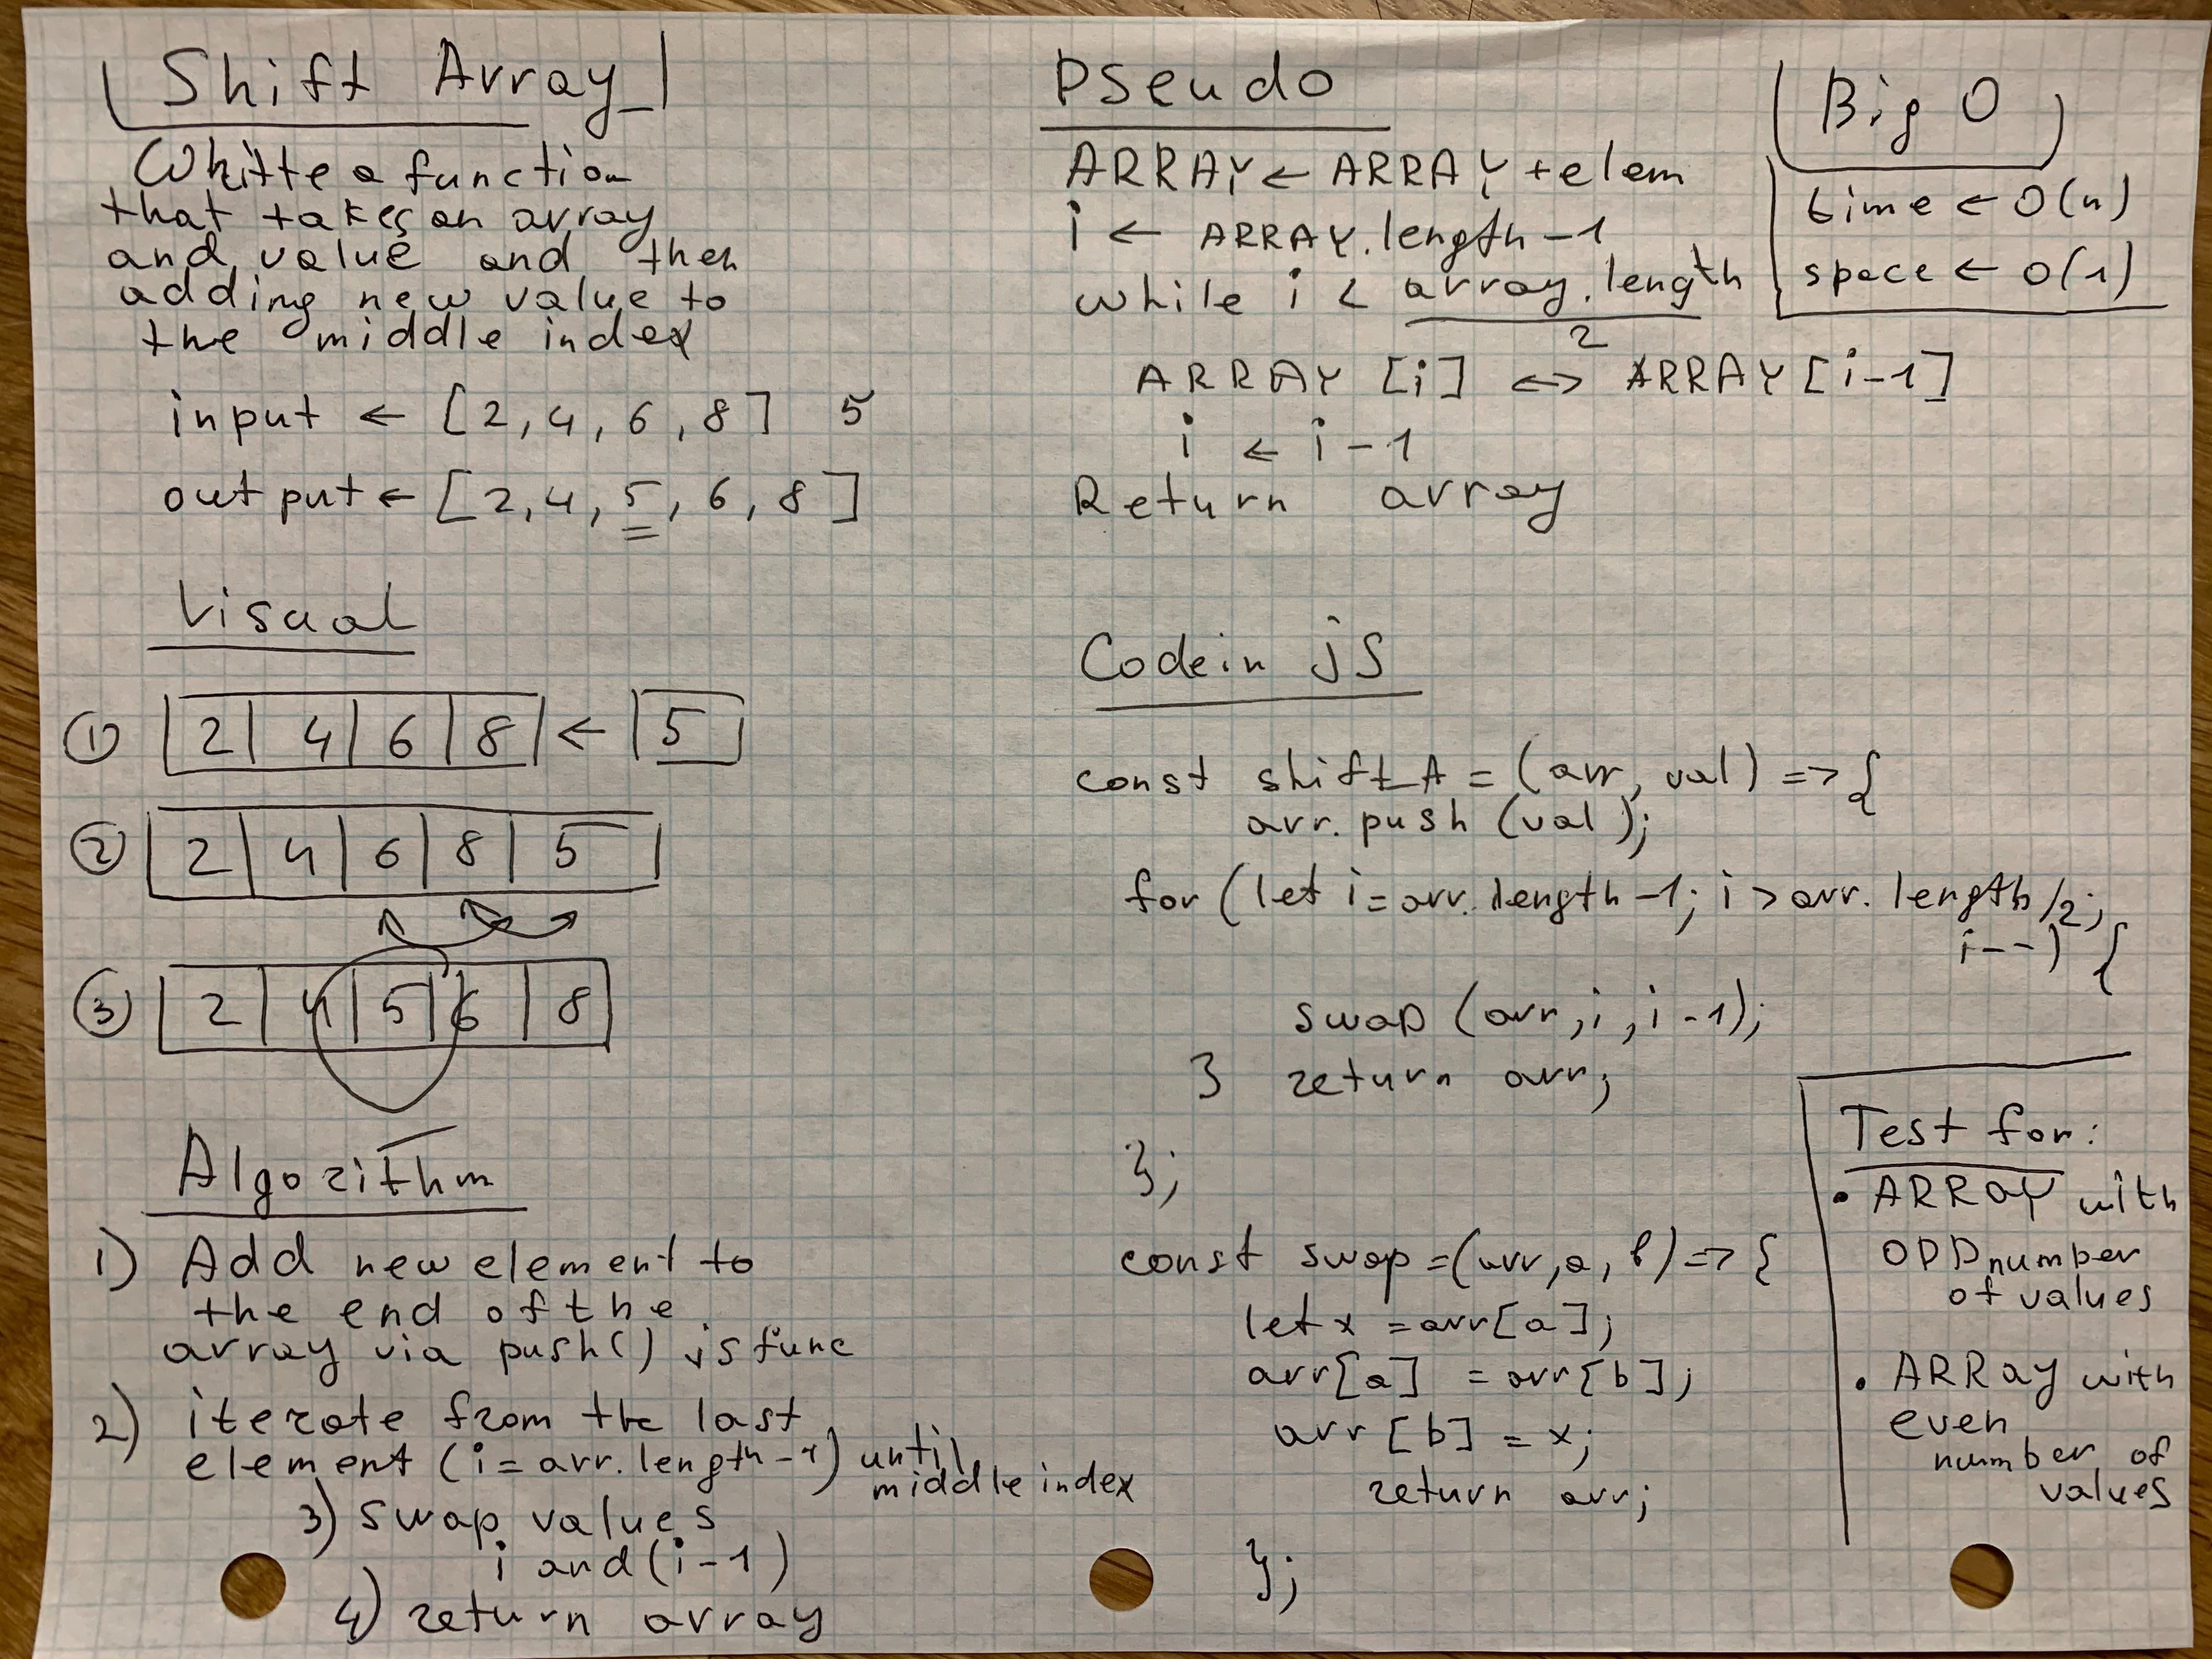 Shift Array
Whitte a function
that takes an array
and value and then
adding new value to
the middle index
input ← [2, 4, 6, 8] 5
output ← [2, 4, 5, 6, 8]
Visual
① 2 4 6 8 ← 5
② 2 4 6 8 5
③ 2 4 5 6 8
Algorithm
1) Add new element to
the end of the
array via push() js func
2) iterate from the last
element (i = arr.length-1) until
middle index
3) swap values
i and (i-1)
4) return array
Pseudo
ARRAY ← ARRAY + elem
i ← ARRAY.length - 1
while i < array.length
2
ARRAY [i] <-> ARRAY [i-1]
i ← i - 1
Return array
Big O
time ← O(n)
space ← O(1)
Code in JS
const shift_A = (arr, val) => {
arr.push (val);
for (let i = arr.length-1; i > arr.length/2;
i--) {
swap (arr, i, i-1);
} return arr;
};
const swap = (arr, a, b) => {
let x = arr[a];
arr[a] = arr[b];
arr[b] = x;
return arr;
};
Test for:
• ARRAY with
ODD number
of values
• ARRay with
even
number of
values